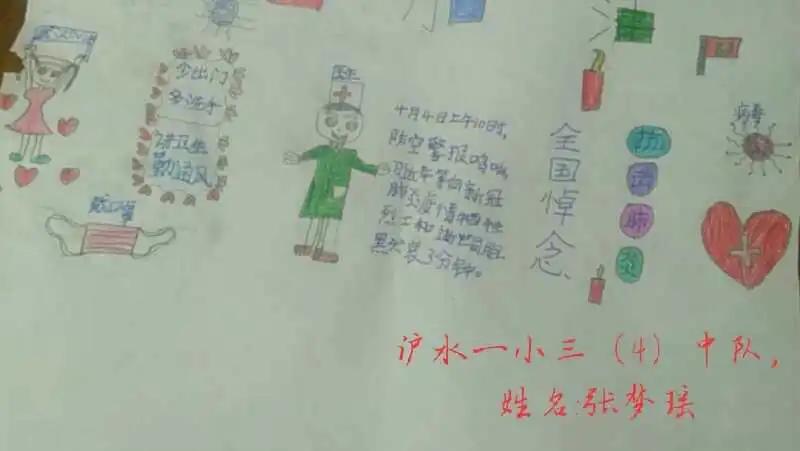 少出门
多洗手
讲卫生
勤通风
医生
4月4日上午10时,
防空警报鸣响
习近平等向新冠
肺炎疫情牺牲
烈士和逝世同胞
默哀3分钟。
全国悼念
抗击肺炎
病毒
泸水一小三(4)中队,
姓名:张梦瑶